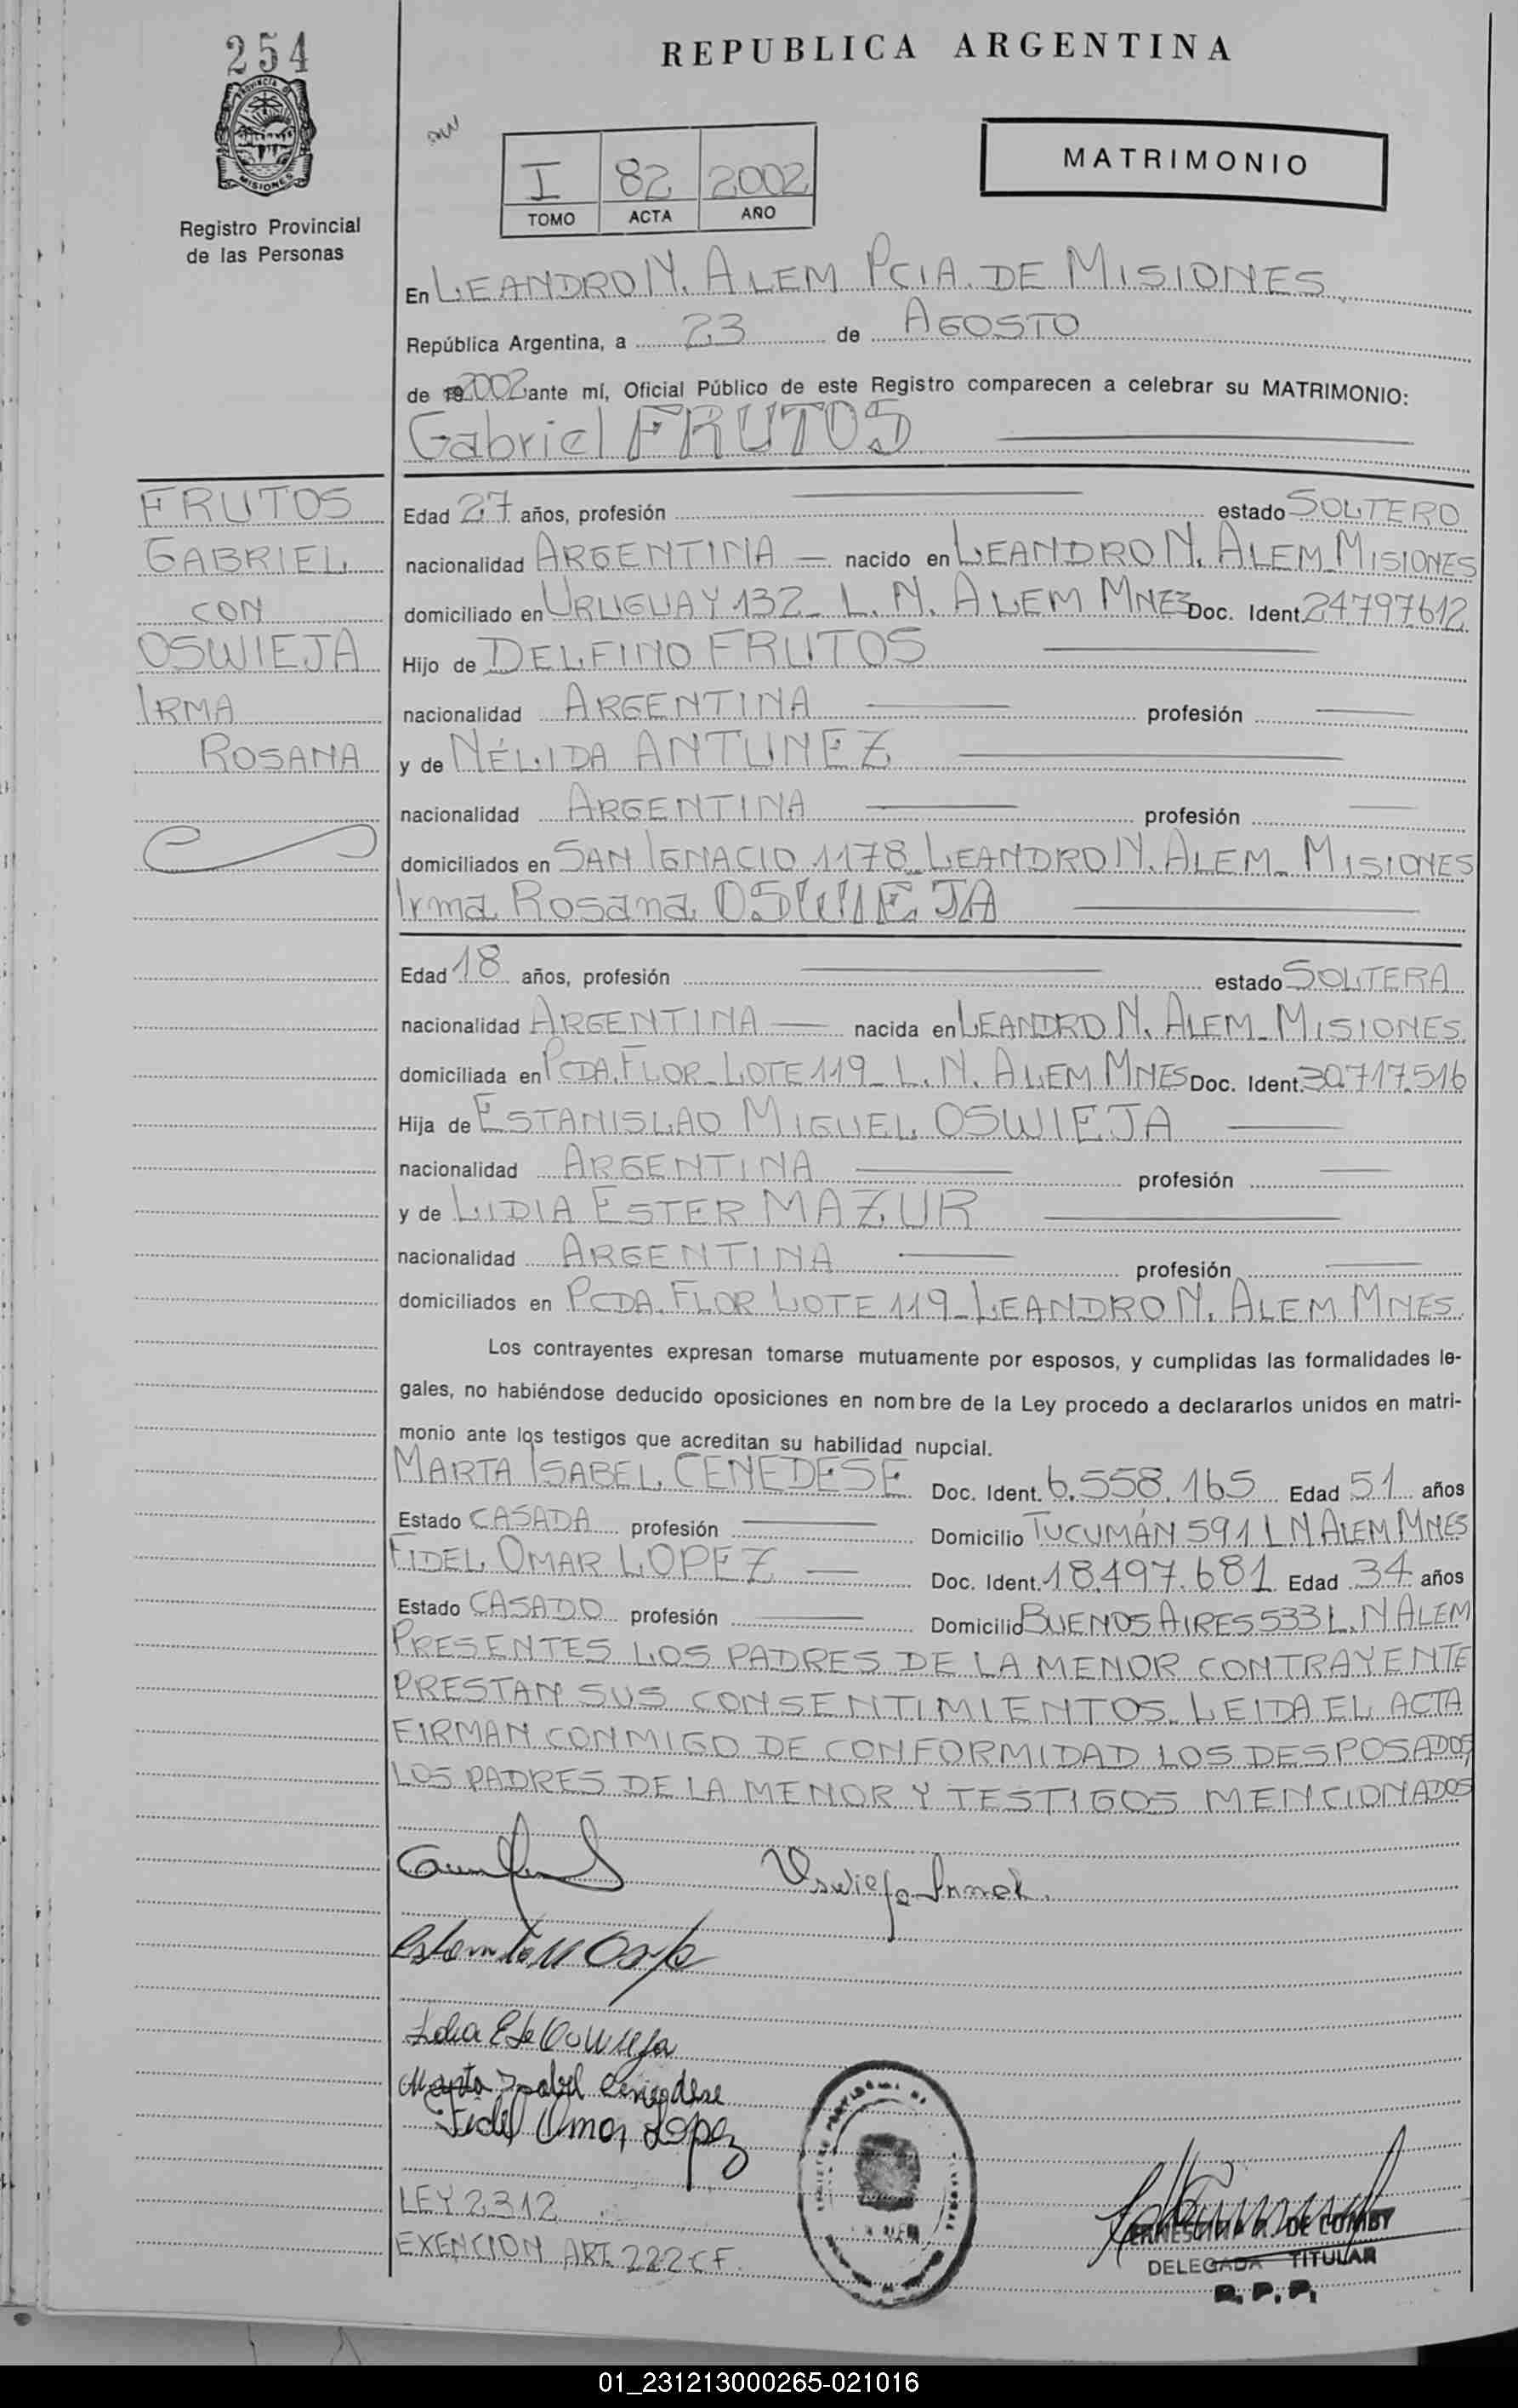 254
REPUBLICA ARGENTINA
PROVINCIA DE
MISIONES
Registro Provincial
de las Personas
I 82 2002
TOMO ACTA AÑO
MATRIMONIO
En LEANDRO N. ALEM PCIA. DE MISIONES
República Argentina, a 23 de AGOSTO
de 192002 ante mí, Oficial Público de este Registro comparecen a celebrar su MATRIMONIO:
Gabriel FRUTOS
FRUTOS
GABRIEL
CON
OSWIEJA
IRMA
ROSANA
Edad 27 años, profesión estado SOLTERO
nacionalidad ARGENTINA — nacido en LEANDRO N. ALEM_MISIONES
domiciliado en URUGUAY 132_ L. N. ALEM MNES Doc. Ident. 24.797.612
Hijo de DELFINO FRUTOS
nacionalidad ARGENTINA profesión
y de NÉLIDA ANTUNEZ
nacionalidad ARGENTINA profesión
domiciliados en SAN IGNACIO 1178_LEANDRO N. ALEM_ MISIONES
Irma Rosana OSWIEJA
Edad 18 años, profesión estado SOLTERA
nacionalidad ARGENTINA — nacida en LEANDRO N. ALEM_MISIONES
domiciliada en PCDA. FLOR_LOTE 119_L. N. ALEM MNES Doc. Ident. 30.717.516
Hija de ESTANISLAO MIGUEL OSWIEJA
nacionalidad ARGENTINA profesión
y de LIDIA ESTER MAZUR
nacionalidad ARGENTINA profesión
domiciliados en PCDA. FLOR LOTE 119_LEANDRO N. ALEM MNES.
Los contrayentes expresan tomarse mutuamente por esposos, y cumplidas las formalidades le-
gales, no habiéndose deducido oposiciones en nombre de la Ley procedo a declararlos unidos en matri-
monio ante los testigos que acreditan su habilidad nupcial.
MARTA ISABEL CENEDESE Doc. Ident. 6.558.165 Edad 51 años
Estado CASADA profesión Domicilio TUCUMÁN 591 L N ALEM MNES
FIDEL OMAR LOPEZ — Doc. Ident. 18.497.681 Edad 34 años
Estado CASADO profesión Domicilio BUENOS AIRES 533 L. N ALEM
PRESENTES LOS PADRES DE LA MENOR CONTRAYENTE
PRESTAN SUS CONSENTIMIENTOS_ LEIDA EL ACTA
FIRMAN CONMIGO DE CONFORMIDAD LOS DESPOSADOS,
LOS PADRES DE LA MENOR Y TESTIGOS MENCIONADOS
Oswieja Irmak.
Marta Isabel Cenedese
Fidel Omar Lopez
LEY 2312
EXENCION ART. 222 CF.
DE COMBY
DELEGADA TITULAR
R. P. P.
01_231213000265-021016